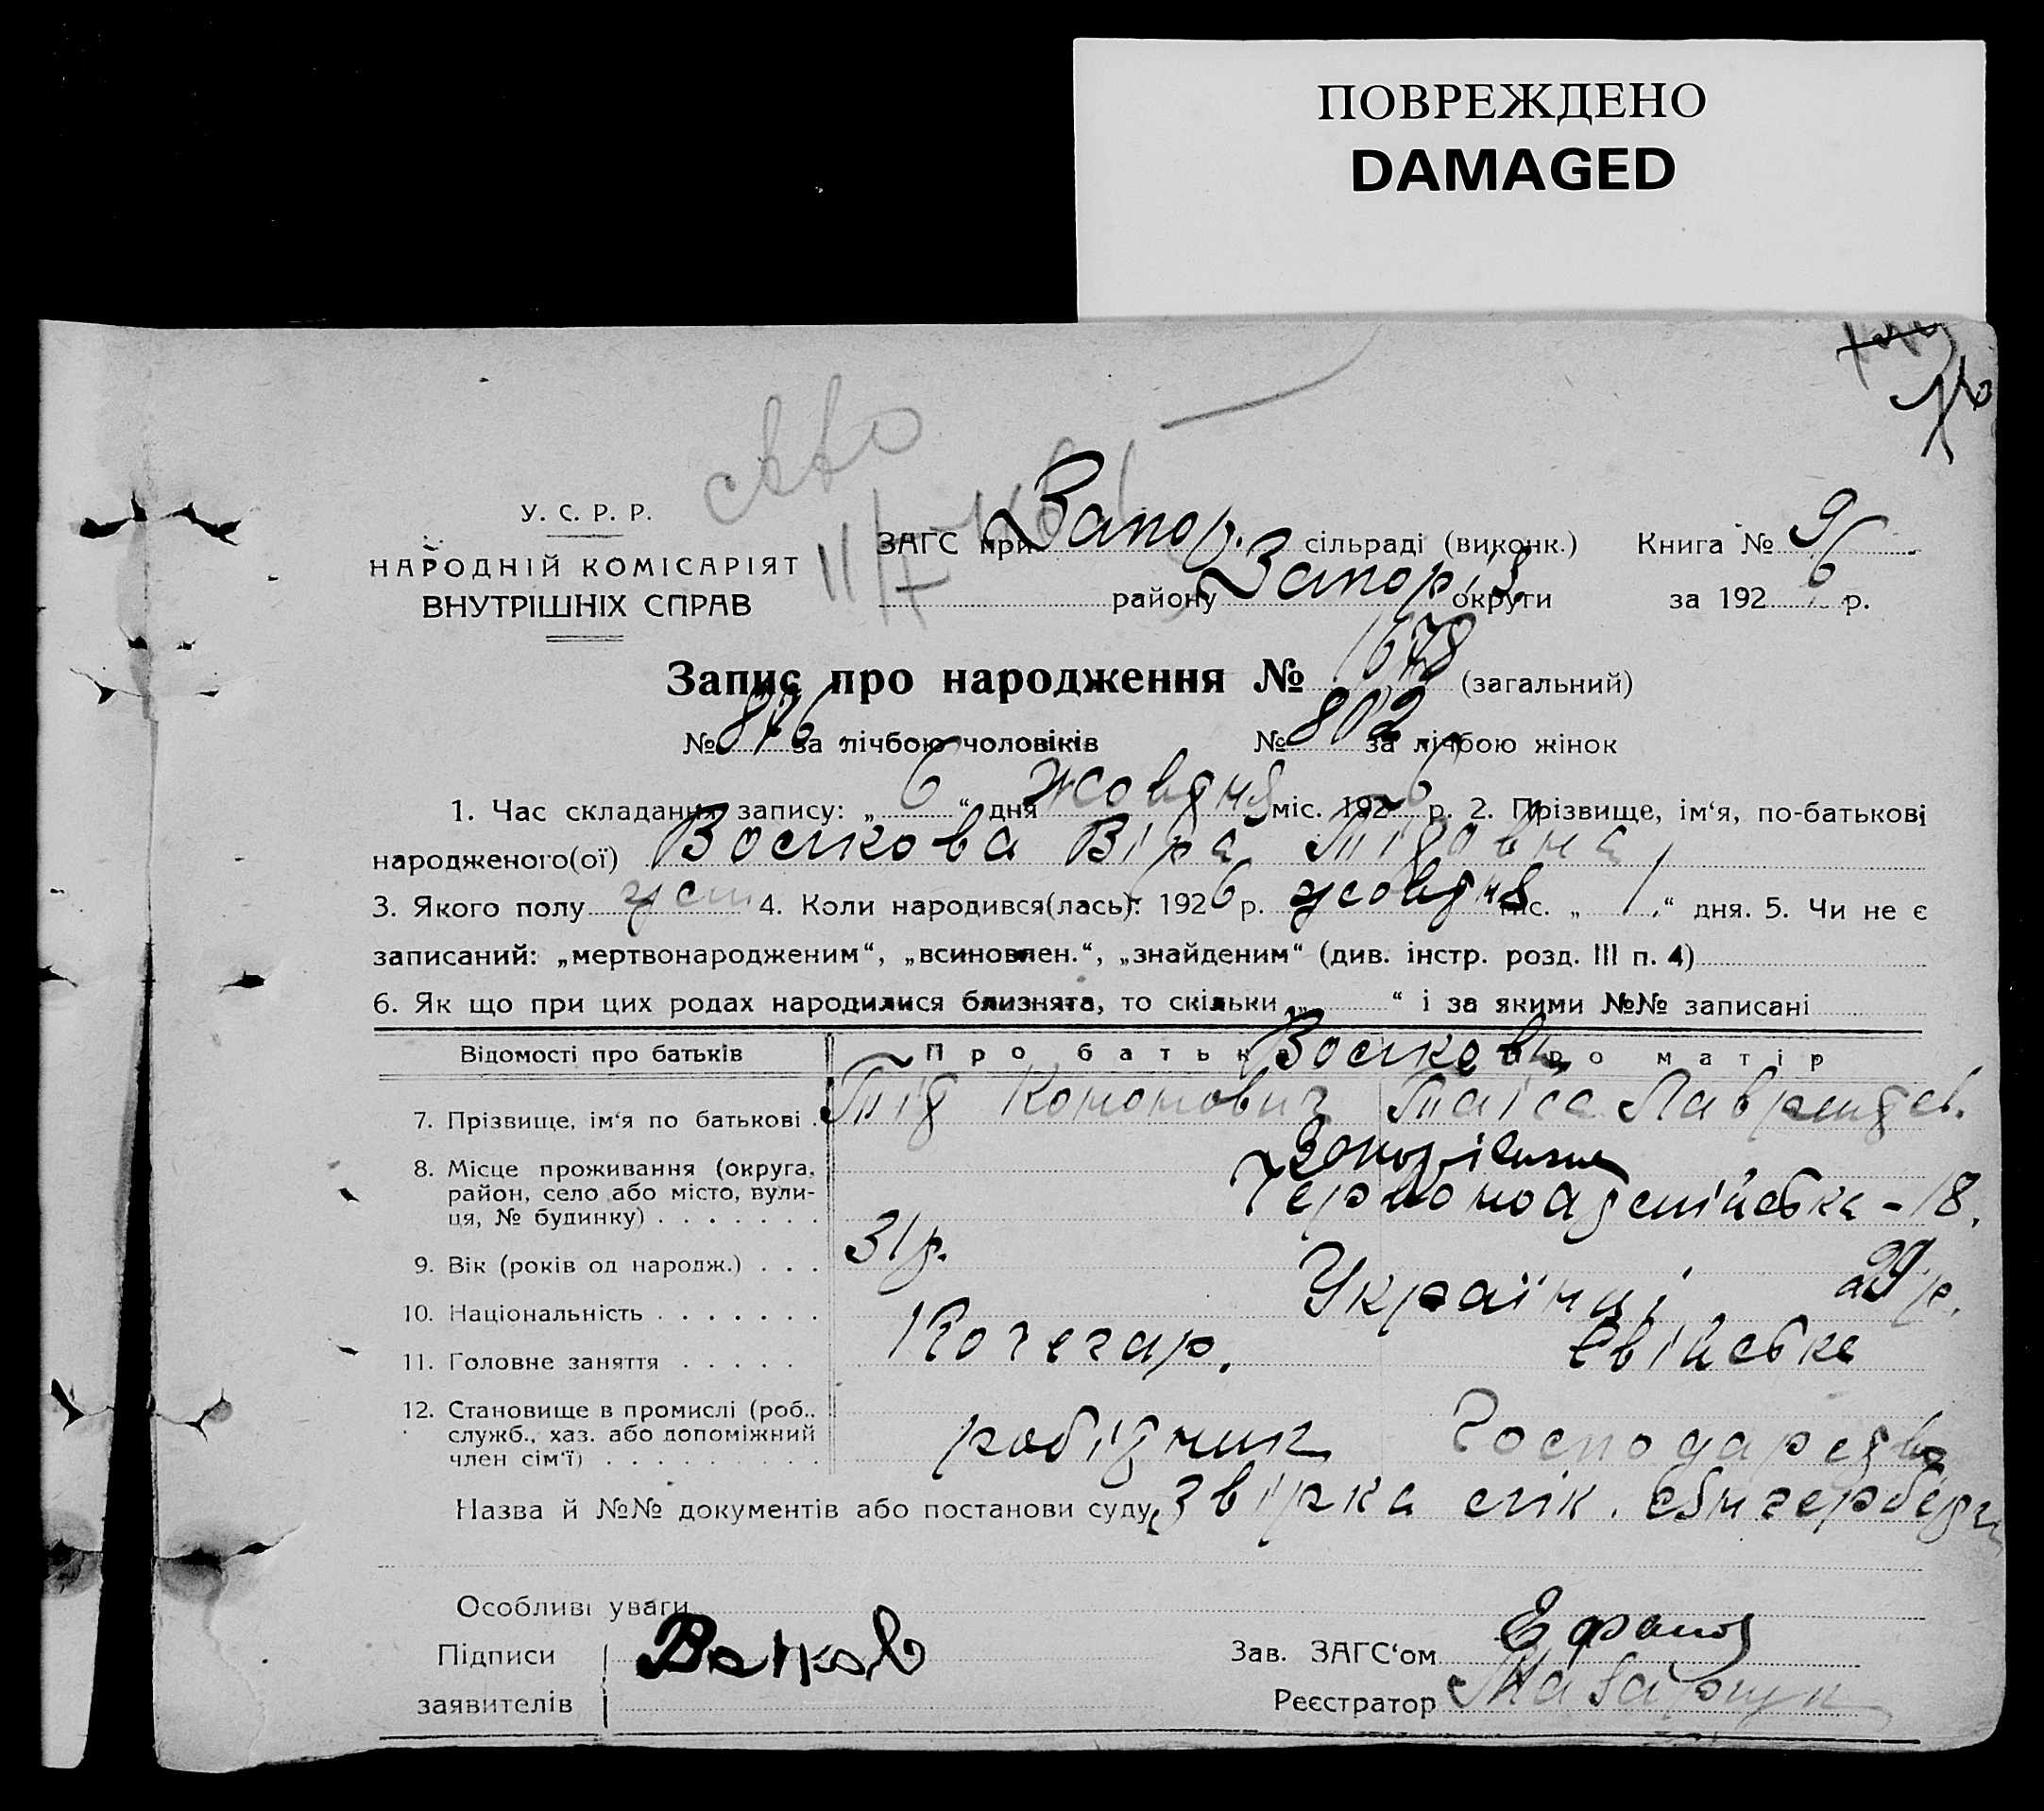 ПОВРЕЖДЕНО
DAMAGED
У. С. Р. Р.
НАРОДНІЙ КОМІСАРІЯТ
ВНУТРІШНІХ СПРАВ
ЗАГС при Запор. сільраді (виконк.) Книга № 9
району Запоріз. округи за 1926 р.
Запис про народження № 1678 (загальний)
№ 876 за лічбою чоловіків № 802 за лічбою жінок
1. Час складання запису: „6“ дня жовтня міс. 1926 р. 2. Прізвище, ім‘я, по-батькові
народженого(ої) Воскова Віра Тітовна
3. Якого полу жен. 4. Коли народився(лась): 1926 р. жовтня міс. „1“ дня. 5. Чи не є
записаний: „мертвонародженим“, „всиновлен.“, „знайденим“ (див. інстр. розд. III п. 4)
6. Як що при цих родах народилися близнята, то скільки „ “ і за якими №№ записані
Відомості про батьків Про батька Воскови Про матір
7. Прізвище, ім‘я по батькові . Тіт Кононович Таїса Лаврентєв.
8. Місце проживання (округа, район, село або місто, вулиця, № будинку) Запоріжжя
Червоноармійська - 18.
9. Вік (років од народж.) . . . 31 р. 29 р.
10. Національність . . . . . . . Українці
11. Головне заняття . . . . . Кочегар. Хатнє
12. Становище в промислі (роб., служб., хаз. або допоміжний член сім‘ї) . . . . . . . . . робітник Господарство
Назва й №№ документів або постанови суду
Особливі уваги
Підписи Зав. ЗАГС‘ом
заявителів Реєстратор